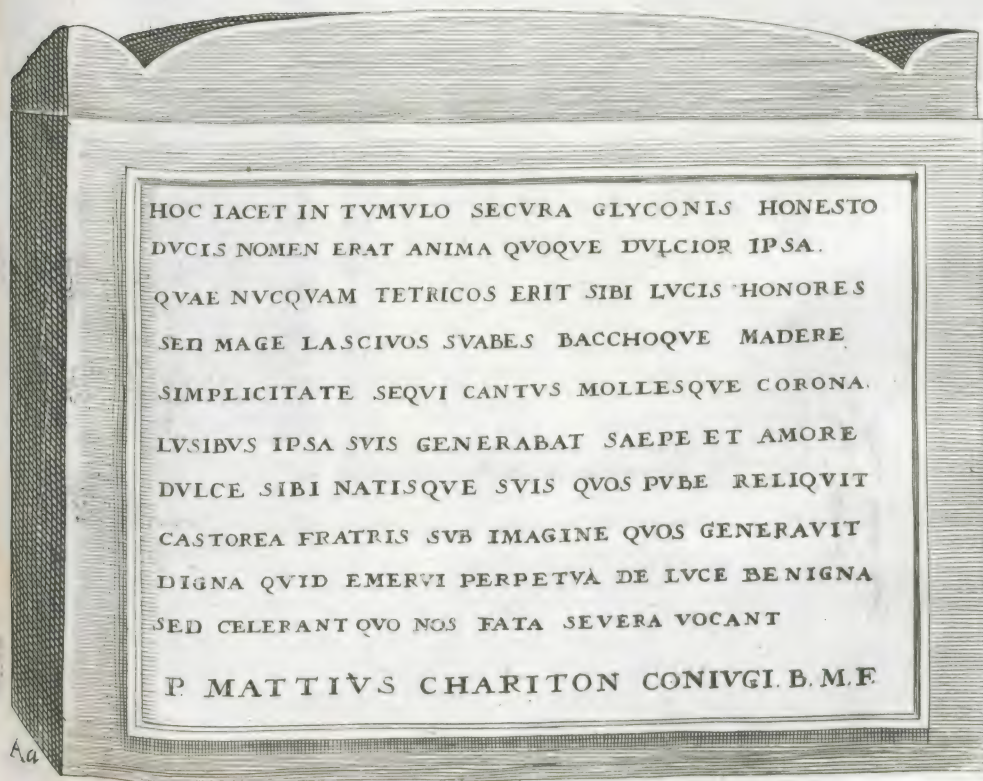 HOC IACET IN TVMVLO SECVRA GLYCONIS HONESTO
DVCIS NOMEN ERAT ANIMA QVOQVE DVLCIOR IPSA.
QVAE NVCQVAM TETRICOS ERIT SIBI LVCIS HONORES
SED MAGE LASCIVOS SVABES BACCHOQVE MADERE
SIMPLICITATE SEQVI CANTVS MOLLESQVE CORONA.
LVSIBVS IPSA SVIS GENERABAT SAEPE ET AMORE
DVLCE SIBI NATISQVE SVIS QVOS PVBE RELIQVIT
CASTOREA FRATRIS SVB IMAGINE QVOS GENERAVIT
DIGNA QVID EMERVI PERPETVA DE LVCE BENIGNA
SED CELERANT QVO NOS FATA SEVERA VOCANT
P. MATTIVS CHARITON CONIVGI. B. M. F.
Aa